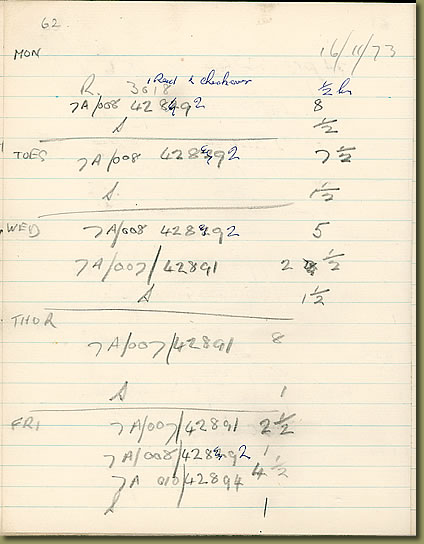 62
MON 16/11/73
R. 3018 1 Red & Checkover ½ h
7A/008 42892 8
S ½
TUES 7A/008 42892 7 ½
S 1½
WED 7A/008 42892 5
7A/007/42891 2 ½
S 1½
THUR
7A/007/42891 8
S 1
FRI 7A/007/42891 2 ½
7A/008/42892 1
7A 010/42894 4 ½
S 1